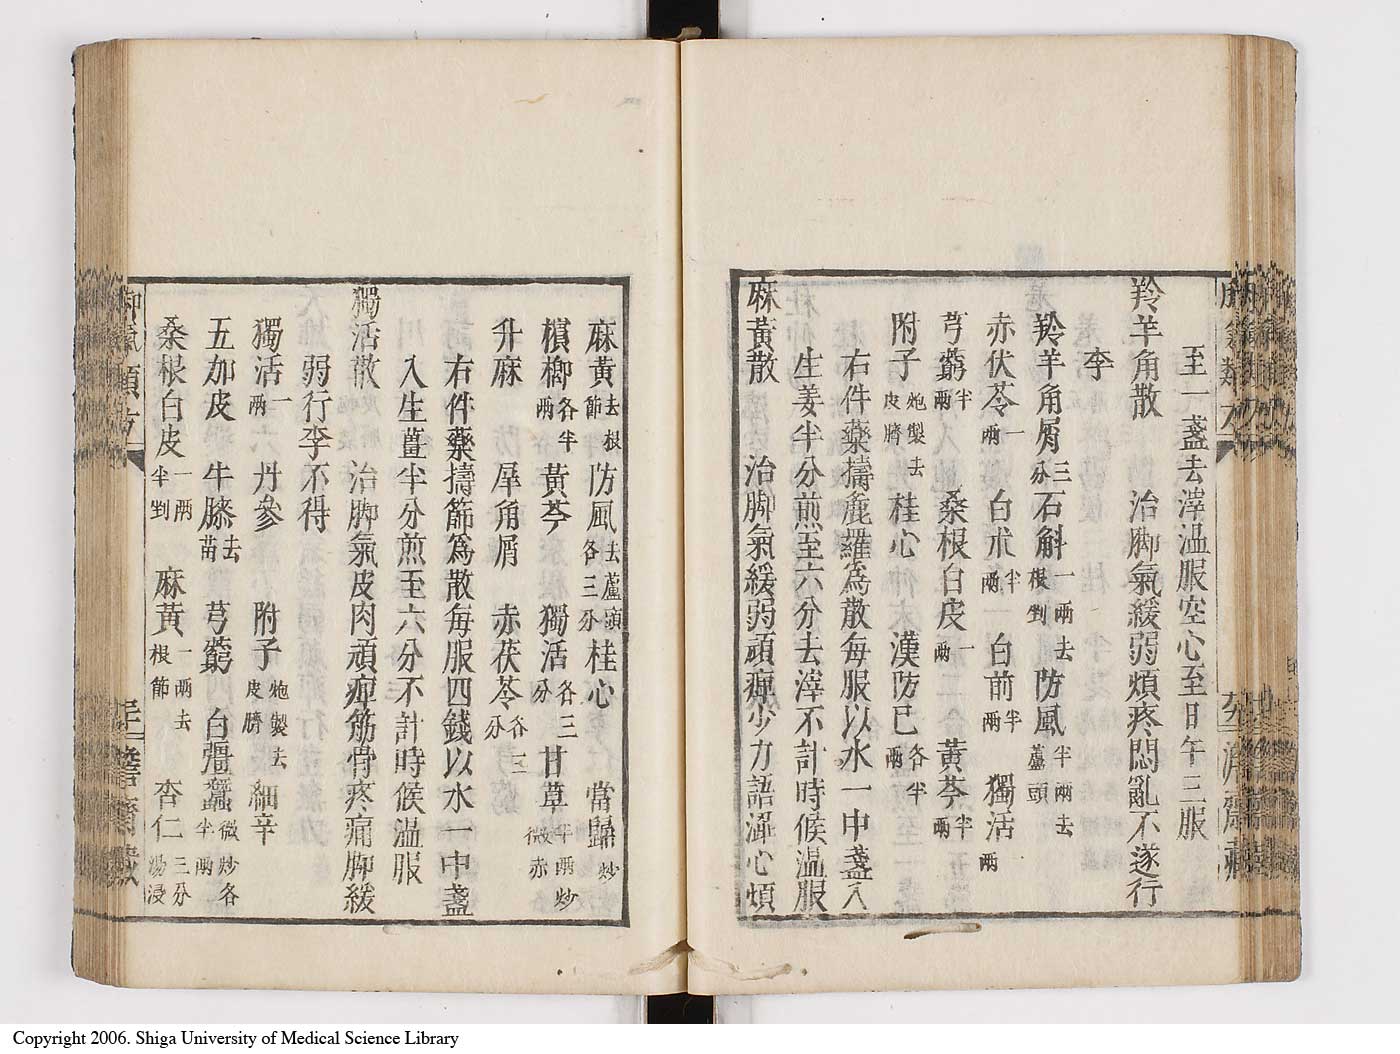 至一盞去滓溫服空心至日午三服
羚羊角散　治脚氣緩弱煩疼悶亂不遂行
李
羚羊角屑三分　石斛一兩去根剉　防風半兩去蘆頭
赤伏苓一兩　白朮半兩　白前半兩　獨活一兩
芎藭半兩　桑根白皮一兩　黃芩半兩
附子炮製去皮臍　桂心仲末　漢防已各半兩
右件藥擣麄羅為散每服以水一中盞入
生姜半分煎至六分去滓不計時候溫服
麻黃散　治脚氣緩弱頑痺少力語澀心煩
麻黃去根節　防風去蘆頭各三分　桂心　當歸炒
檳榔各半兩　黃芩　獨活各三分　甘草半兩炒微赤
升麻　犀角屑　赤茯苓各三分
右件藥擣篩為散每服四錢以水一中盞
入生薑半分煎至六分不計時候溫服
獨活散　治脚氣皮肉頑痺筋骨疼痛脚緩
弱行李不得
獨活一兩　丹參　附子炮製去皮臍　細辛
五加皮　牛膝去苗　芎藭　白殭蠶微炒各半兩
桑根白皮一兩半剉　麻黃一兩去根節　杏仁三分湯浸
Copyright 2006. Shiga University of Medical Science Library